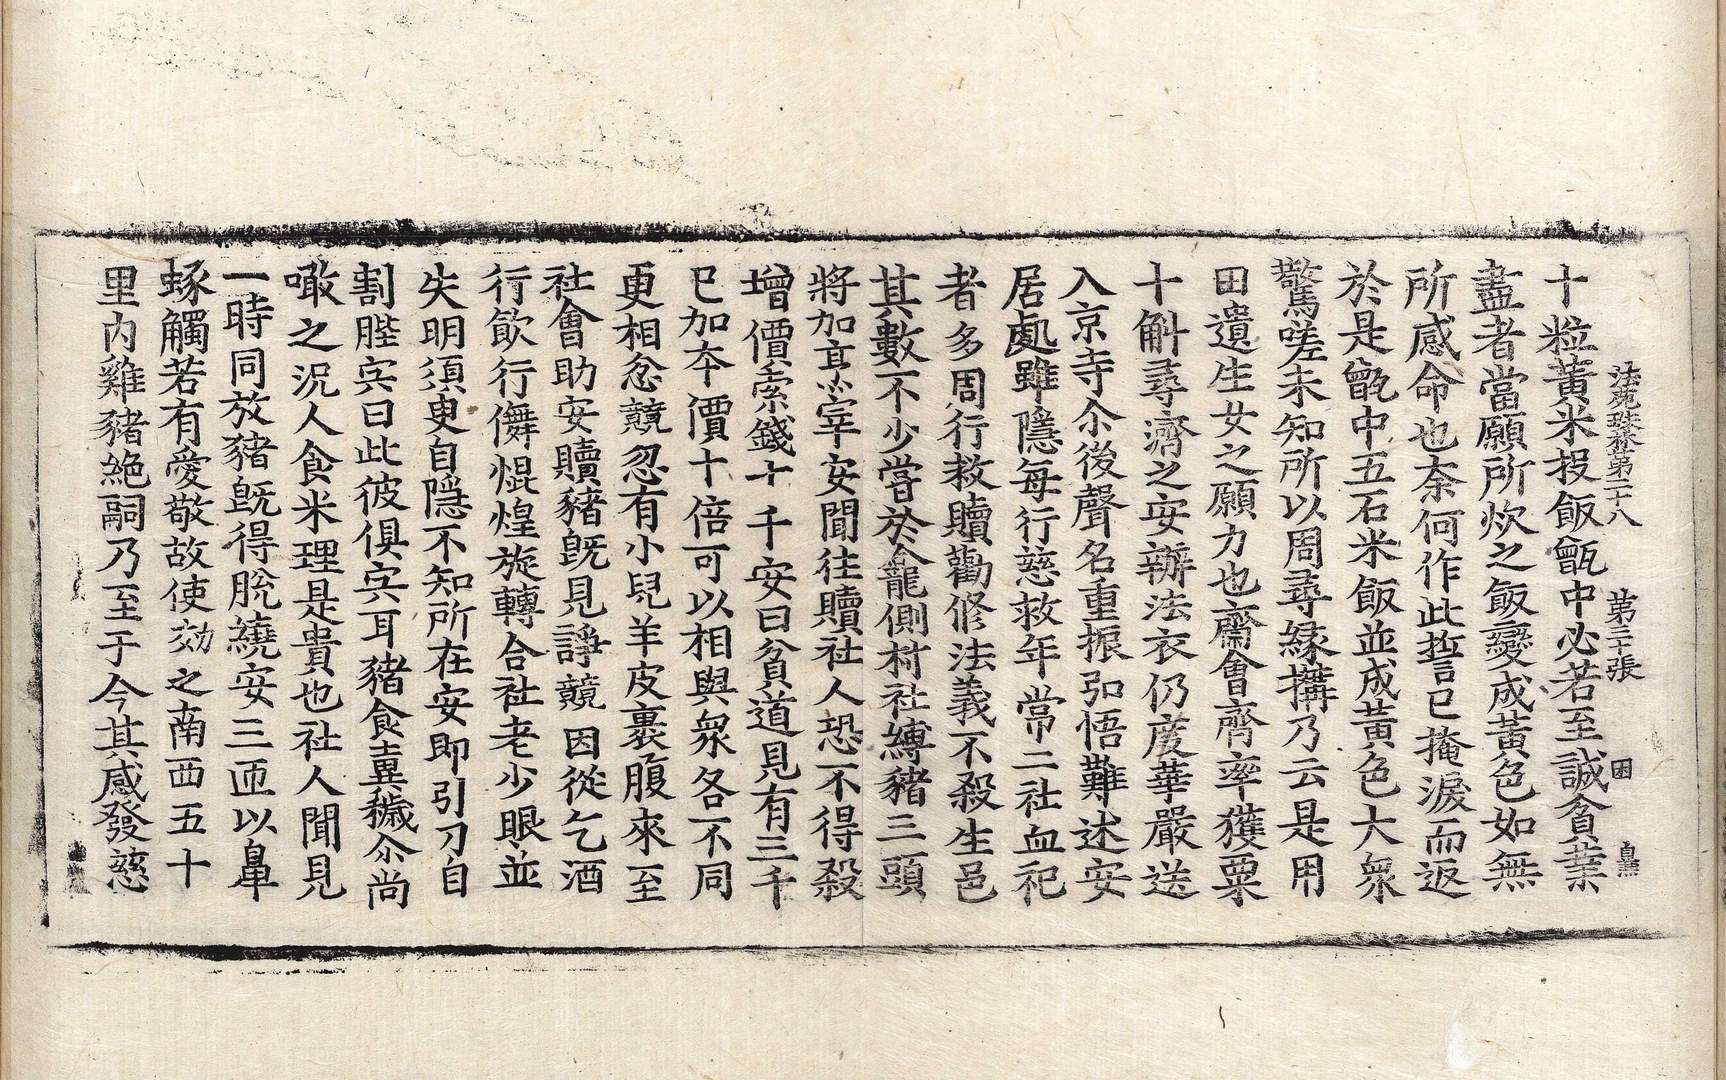 法苑珠林第二十八 第三十張 困 勲
十粒黃米投飯甑中必若至誠貧業
盡者當願所炊之飯變成黃色如無
所感命也柰何作此誓已掩淚而返
於是甑中五石米飯並成黃色大衆
驚嗟未知所以周尋緣構乃云是用
田遺生女之願力也齋會齊率獲粟
十斛尋濟之安辦法衣仍度華嚴送
入京寺尒後聲名重振弘悟難述安
居處雖隱每行慈救年常二社血祀
者多周行救贖勸修法義不殺生邑
其數不少嘗於龕側村社縛豬三頭
將加烹宰安聞往贖社人恐不得殺
增價索錢十千安曰貧道見有三千
已加本價十倍可以相與衆各不同
更相忿競忽有小兒羊皮裹腹來至
社會助安贖豬旣見諍競因從乞酒
行飮行儛焜煌旋轉合社老少眼並
失明須臾自隱不知所在安即引刀自
割䏶宍曰此彼俱宍耳豬食糞穢尒尚
噉之況人食米理是貴也社人聞見
一時同放豬旣得脫繞安三匝以鼻
㖨觸若有愛敬故使効之南西五十
里內雞豬絕嗣乃至于今其感發慈